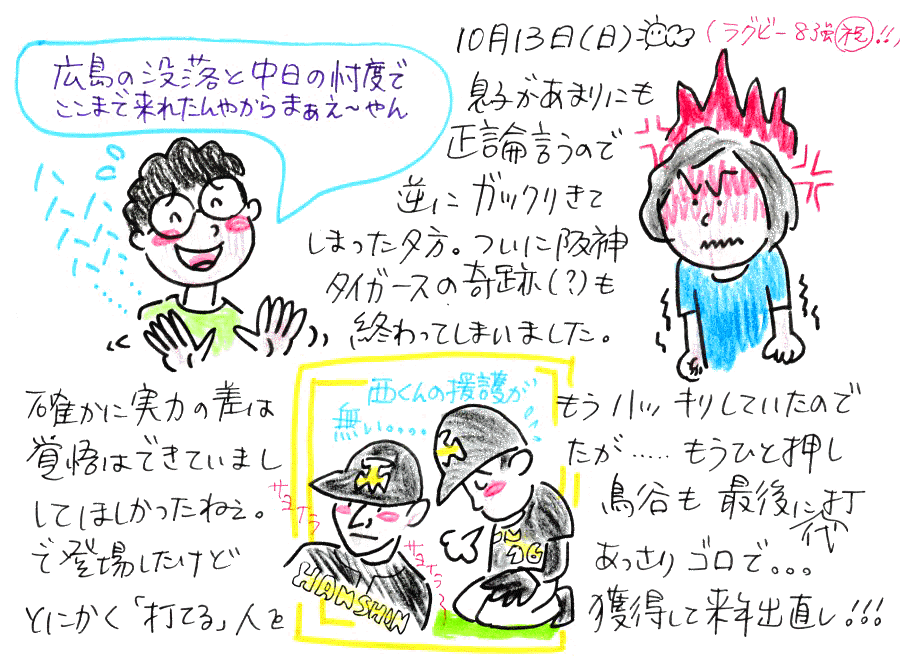 10月13日(日)
(ラグビー8強祝!!)
広島の没落と中日の忖度で
ここまで来れたんやからまぁえ〜やん
ハハハハハハ
息子があまりにも
正論言うので
逆にガックリきて
しまった夕方。ついに阪神
タイガースの奇跡(?)も
終わってしまいました。
確かに実力の差はもうハッキリしていたので
覚悟はできていましたが……もうひと押し
してほしかったねぇ。鳥谷も最後に代打
で登場したけどあっさりゴロで。。。
とにかく「打てる」人を獲得して来年出直し!!!
西くんの援護が
無い。。。。
サヨナラ
サヨナラ〜
HANSHIN
TIG